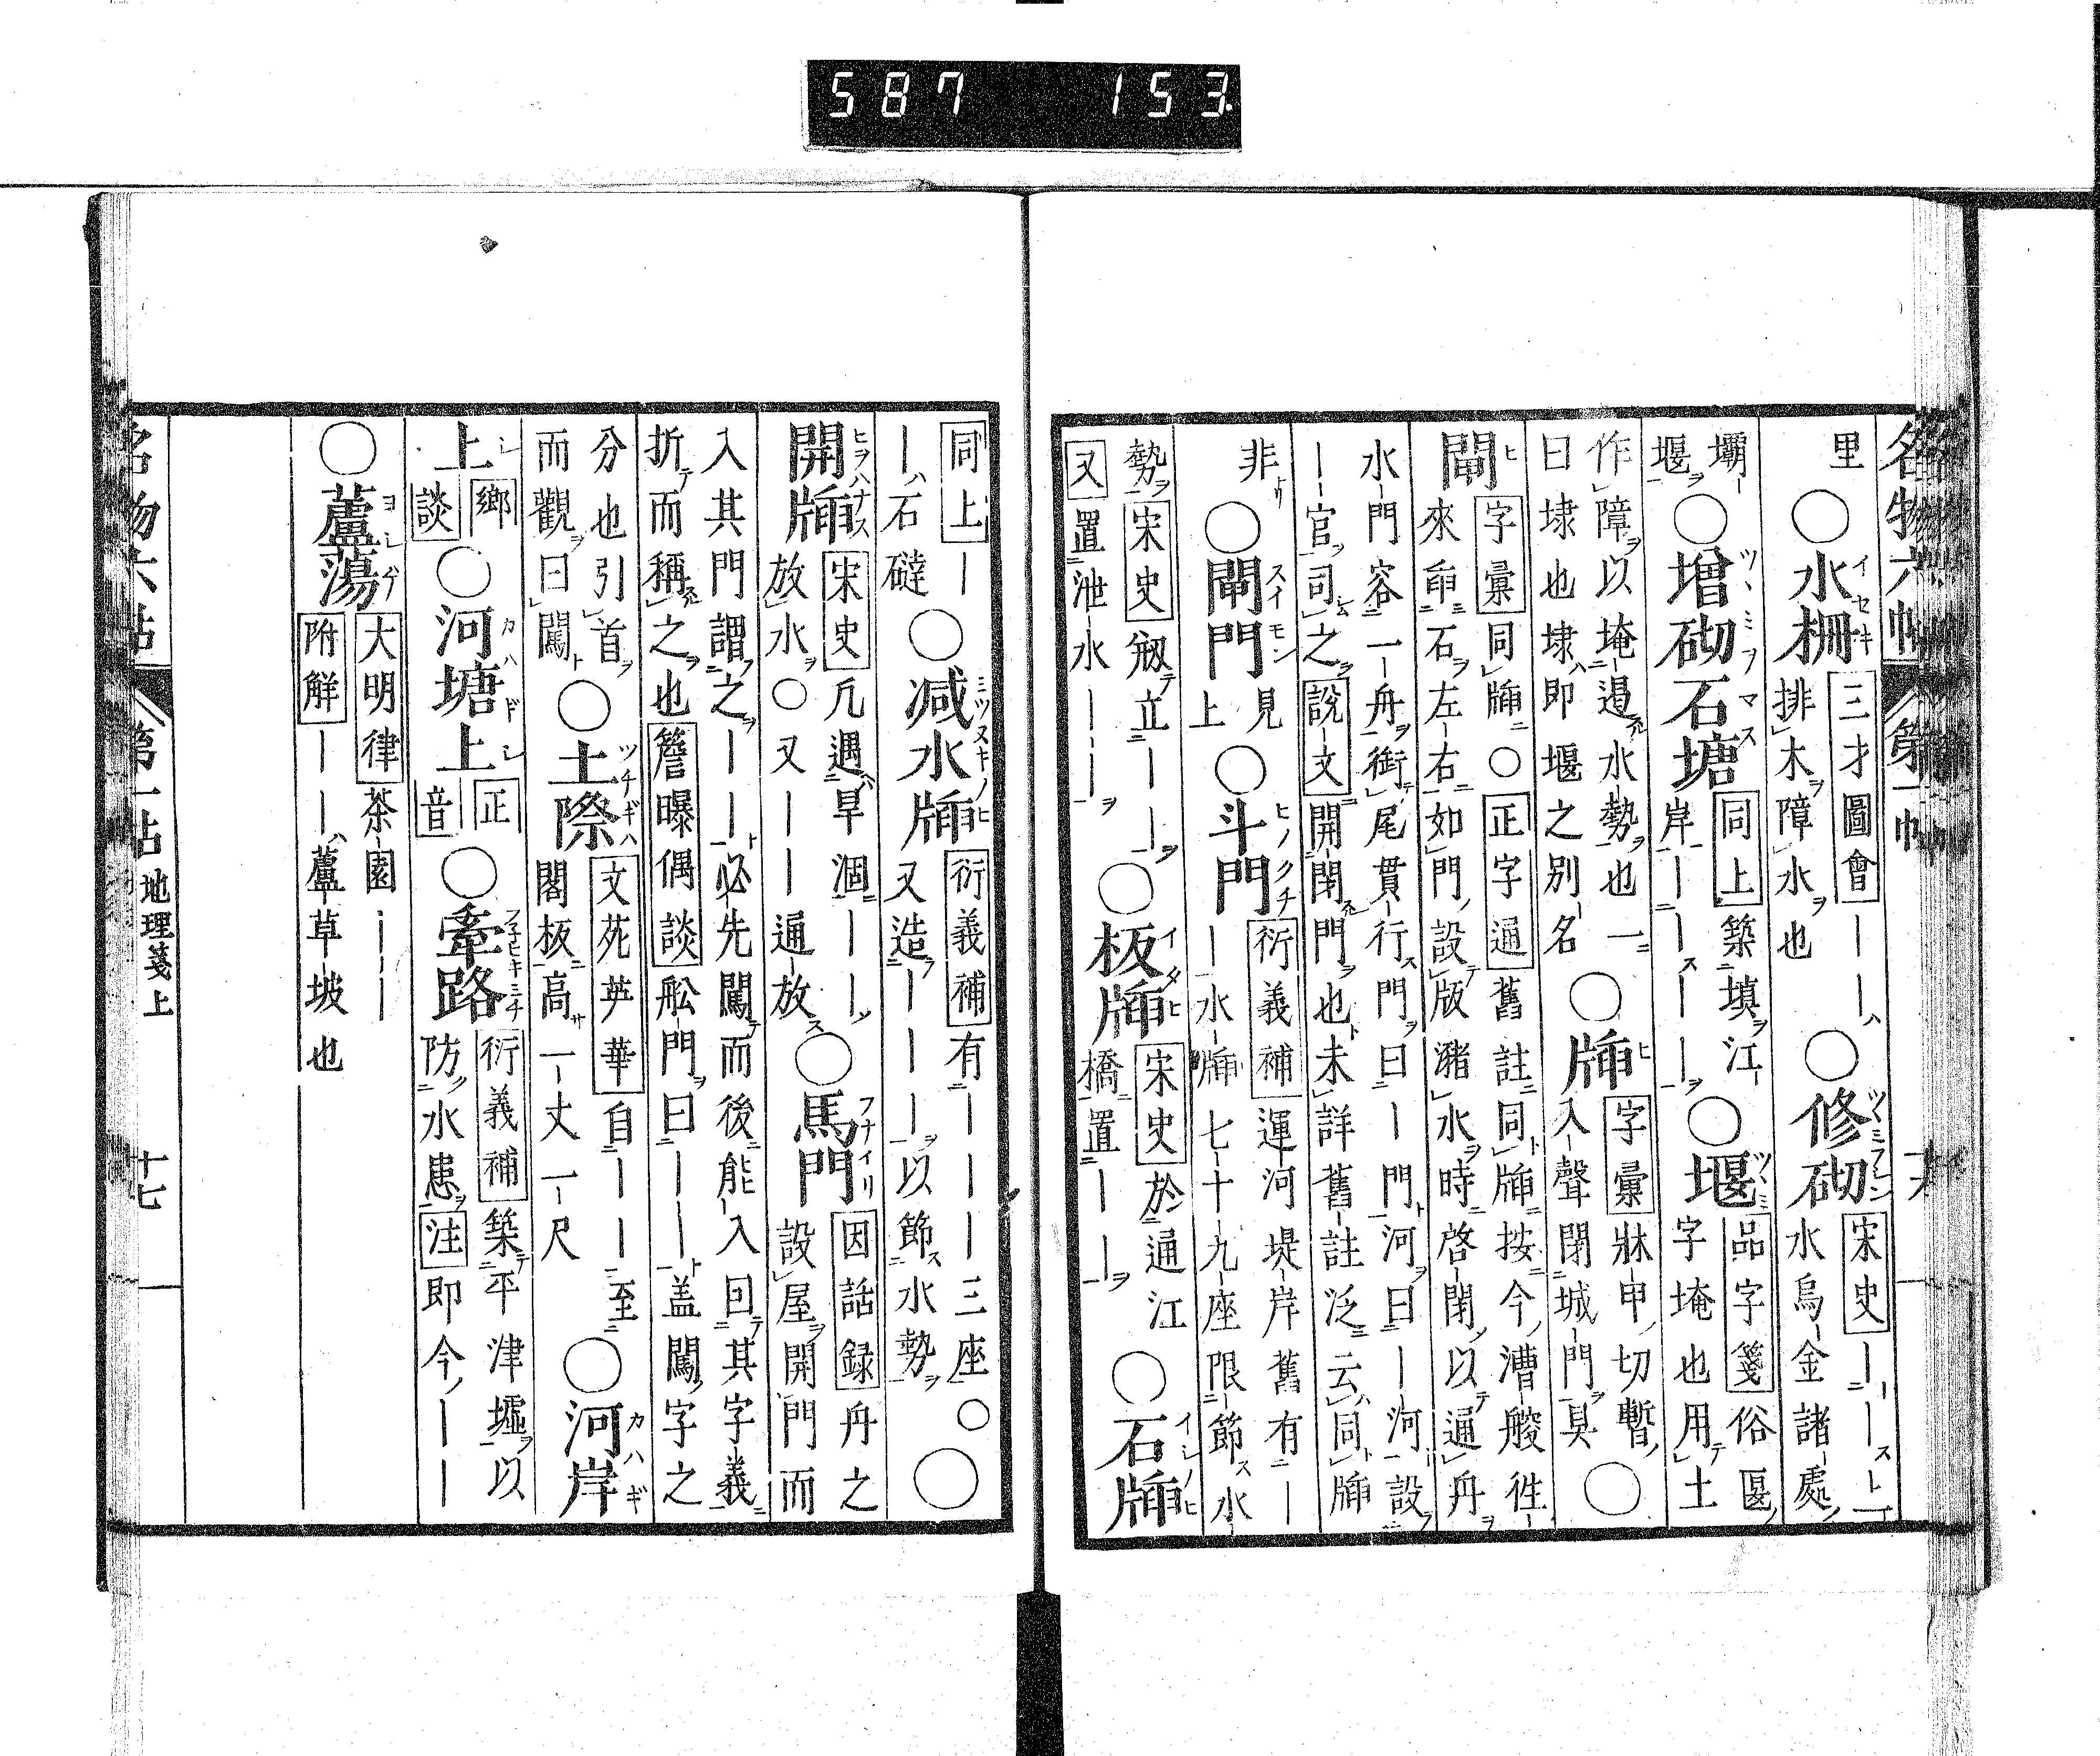 587 153
名物六帖 第一帖 十六
里 ○水柵 三才圖會 ｜｜排木障水也 ○修砌 宋史 ｜｜水烏金諸處
壩堰 ○增砌石塘 同上 築填江岸｜｜｜｜ ○堰 品字箋 俗匽字埯也用土
作障以埯遏水勢也一曰埭也埭即堰之別名 ○牐 字彙 牀申切暫入聲閉城門具 ○
閘 字彙 同牐○ 正字通 舊註同牐按今漕艘徃來臿石左右如門設版瀦水時啓閉以通舟
水門容一舟銜尾貫行門曰｜門河曰｜河設｜官司之 說文 開閉門也未詳舊註泛云同牐
非 ○閘門 見上 ○斗門 衍義補 運河堤岸舊有｜｜水牐七十九座限節水
勢 宋史 剏立｜｜ 又 置泄水｜｜ ○板牐 宋史 於通江橋置｜｜ ○石牐
同上 ｜｜石䃮 ○減水牐 衍義補 有｜｜｜三座○又造｜｜｜以節水勢 ○
開牐 宋史 凢遇旱涸｜｜放水○又｜｜通放 ○馬門 因話録 舟之設屋開門而
入其門謂之｜｜必先闖而後能入回其字義折而稱之也 簷曝偶談 舩門曰｜｜盖闖字之
分也引首而觀曰闖 ○土際 文苑英華 自｜｜至閣板高一丈一尺 ○河岸
上 鄉談 ○河塘上 正音 ○牽路 衍義補 築平津墟以防水患 注 即今｜｜
○蘆蕩 大明律 茶園｜｜ 附解 ｜｜蘆草坡也
名物六帖 第一帖 地理箋上 十七